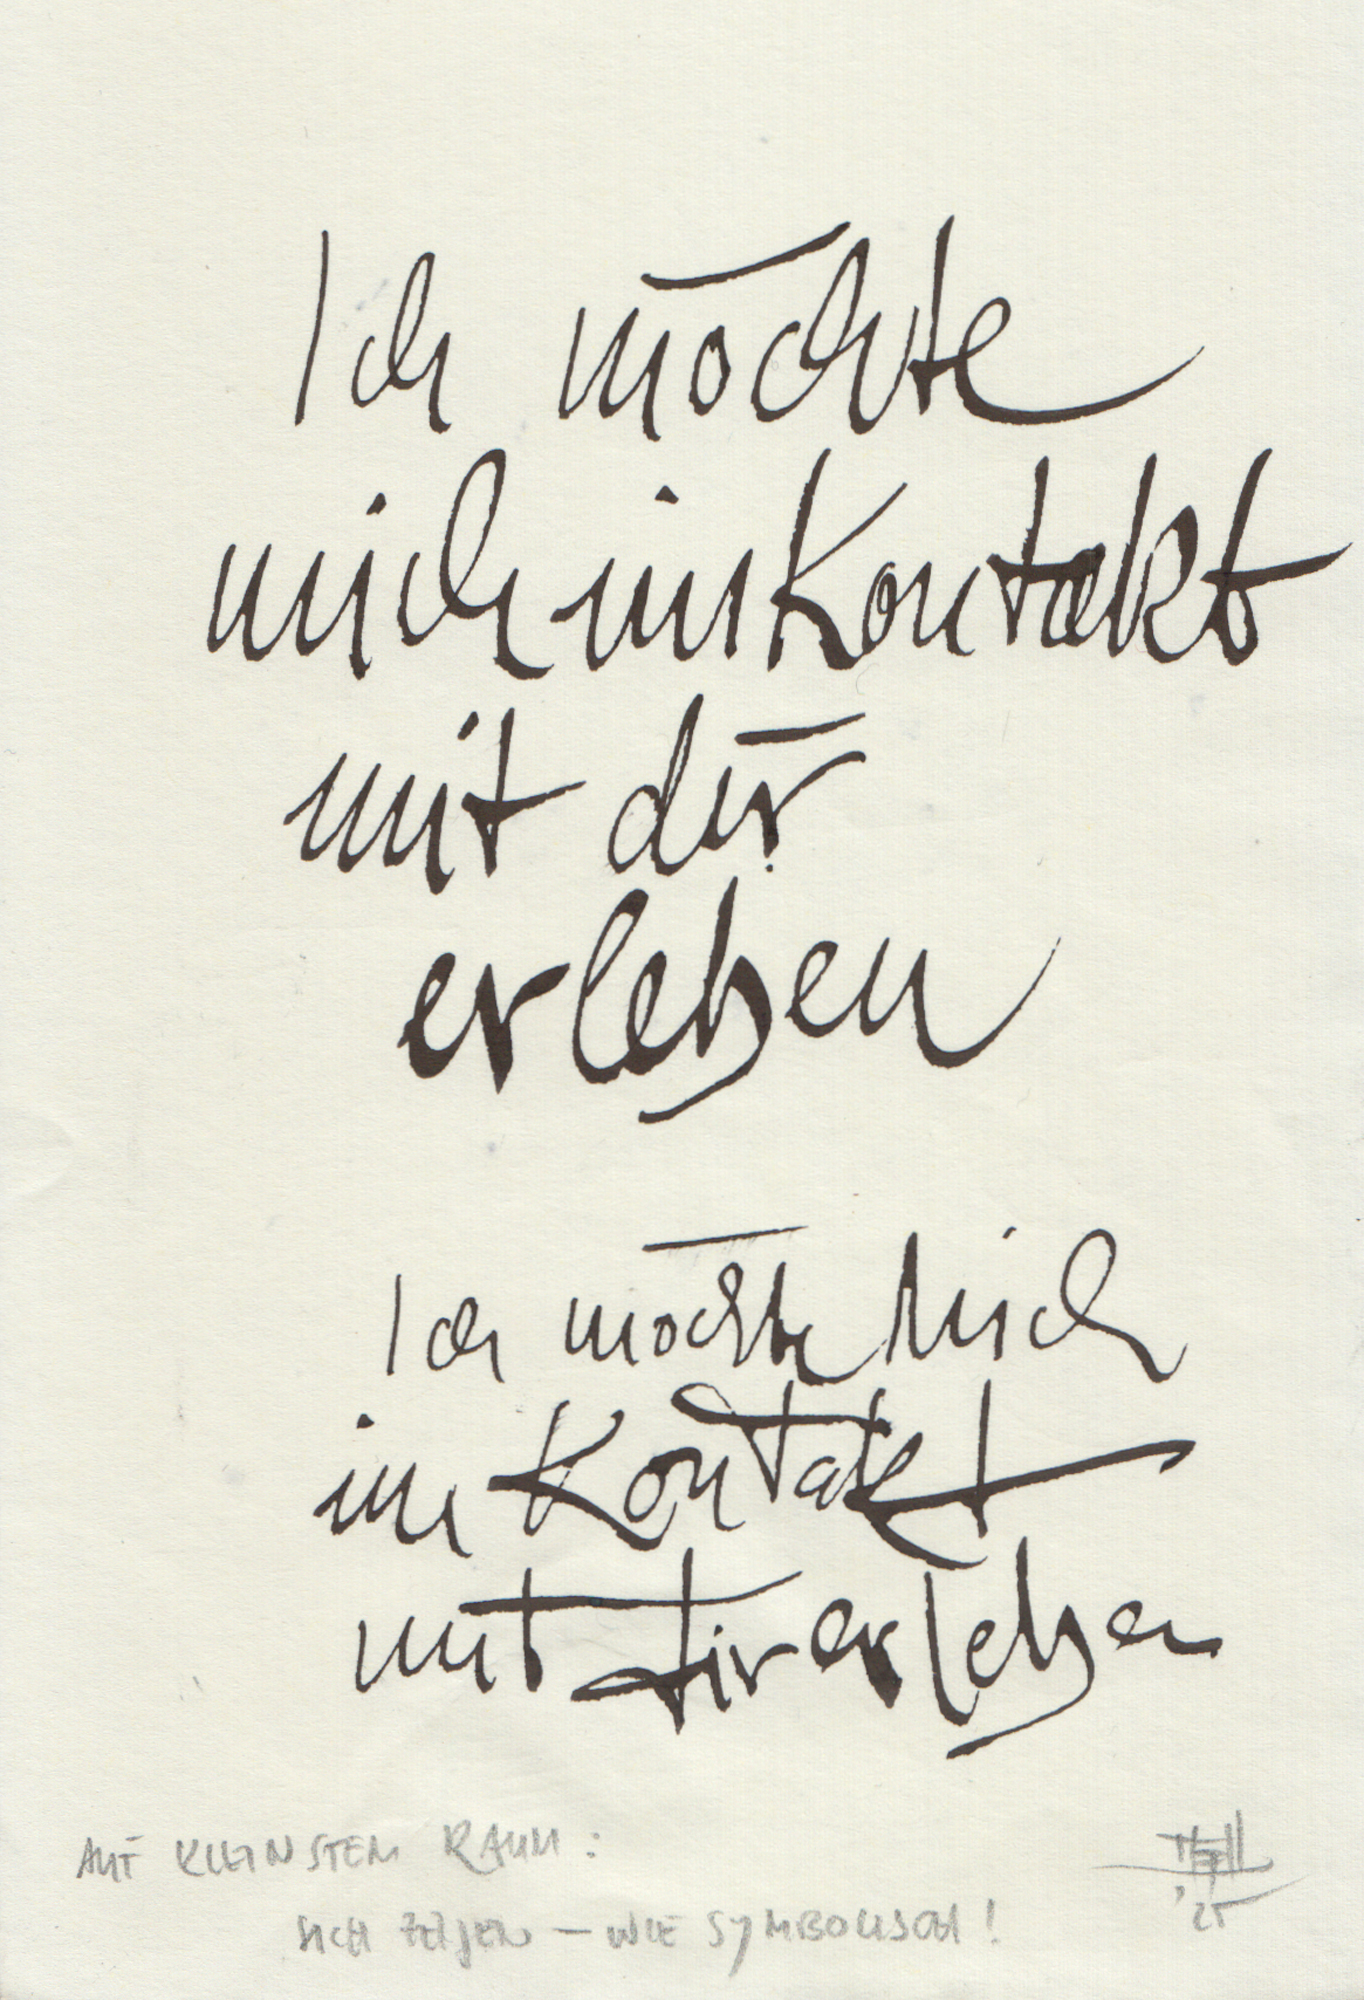 Ich möchte
mich im Kontakt
mit dir
erleben
Ich möchte mich
im Kontakt
mit dir erleben
AUF KLEINSTEM RAUM:
SICH ZEIGEN – WIE SYMBOLISCH!
'25